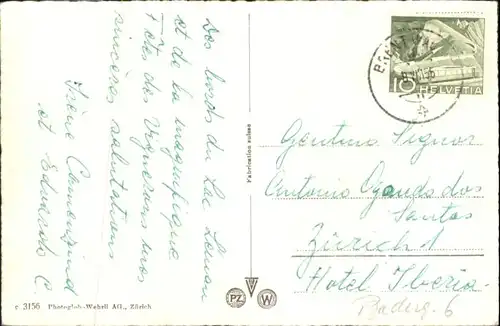 Des bords du Lac Léman
et de la magnifique
Fêtes des Vignerons nos
sincères salutations
Irène Camenzind
et Eduardo C.
c 3156 Photoglob-Wehrli AG., Zürich
Fabrication suisse
PZ
W
BRENT
10 HELVETIA
Gentimo Signor
Antonio Ogando dos
Santos
Zürich 1
Hotel Iberia
Baderg. 6